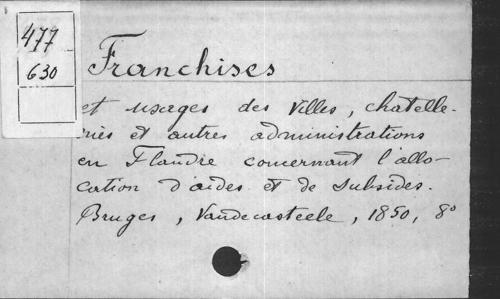 477
630
Franchises
et usages des villes, chatelle-
nies et autres administrations
en Flandre concernant l'allo-
cation d'aides et de subsides.
Bruges, Vandecasteele, 1850, 8°